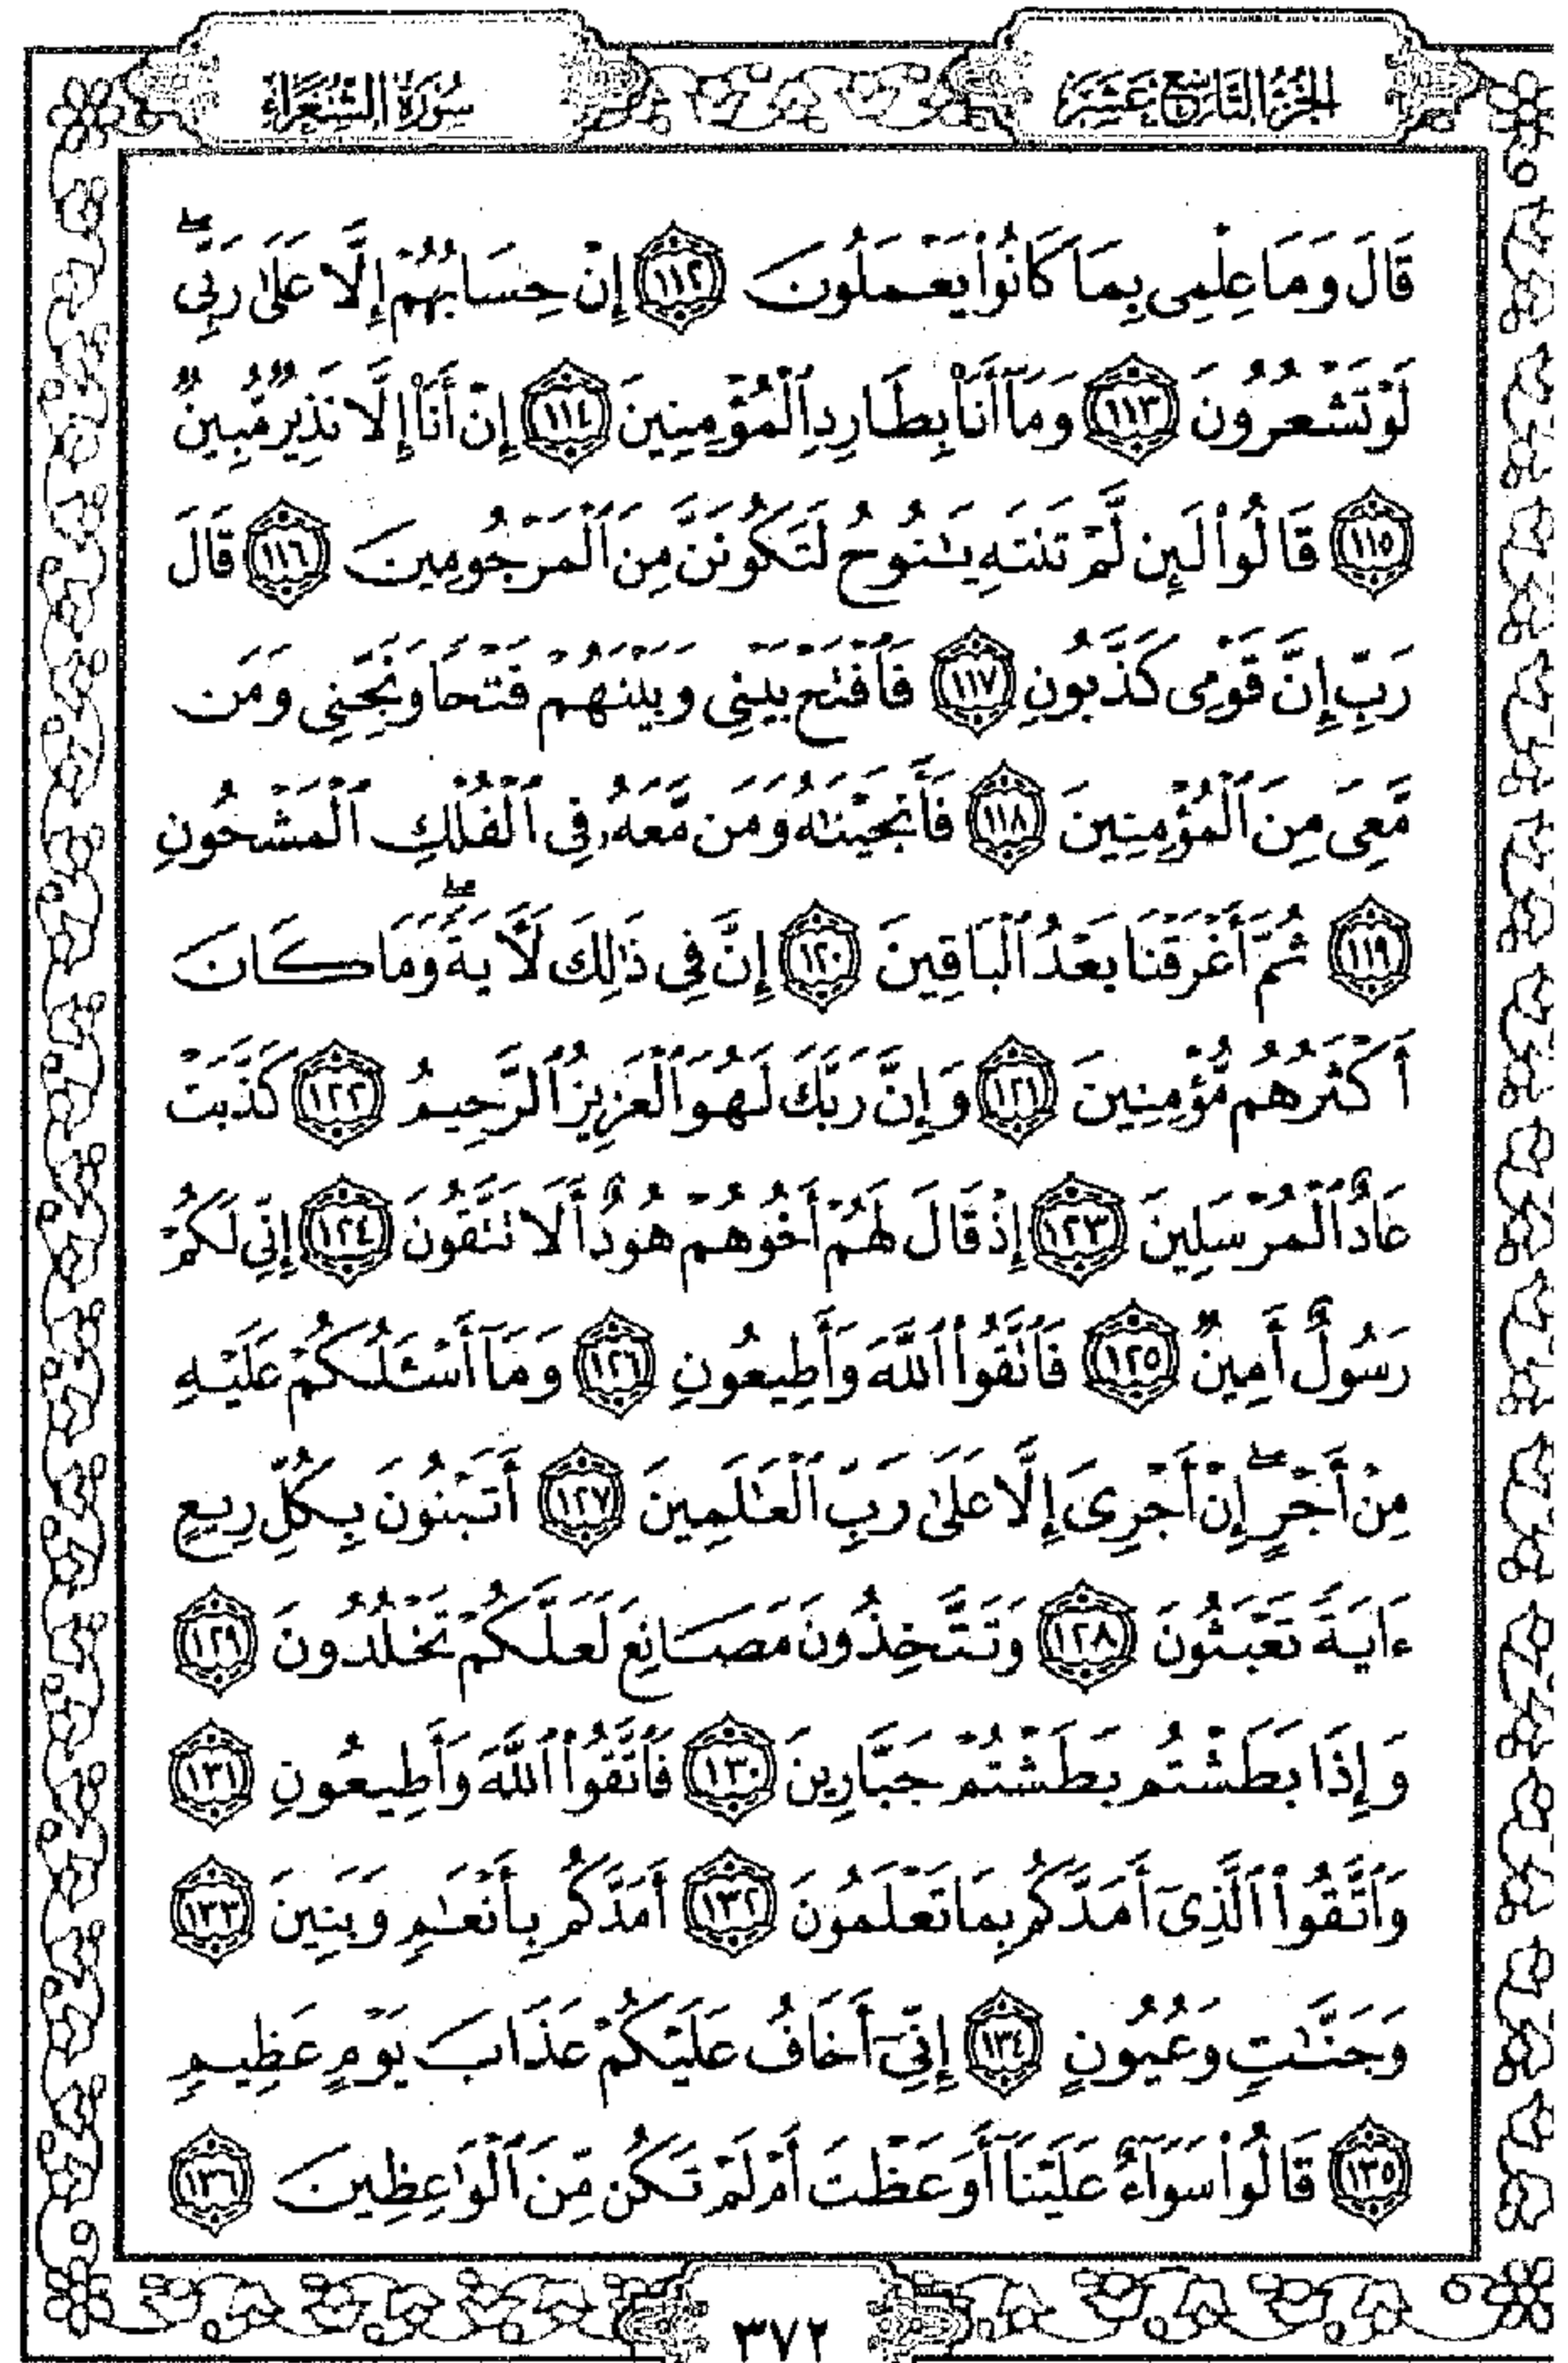 الجزء التاسع عشر
سورة الشعراء
قَالَ وَمَا عِلْمِى بِمَا كَانُوا۟ يَعْمَلُونَ ١١٢ إِنْ حِسَابُهُمْ إِلَّا عَلَىٰ رَبِّى ۖ
لَوْ تَشْعُرُونَ ١١٣ وَمَآ أَنَا۠ بِطَارِدِ ٱلْمُؤْمِنِينَ ١١٤ إِنْ أَنَا۠ إِلَّا نَذِيرٌ مُّبِينٌ
١١٥ قَالُوا۟ لَئِن لَّمْ تَنتَهِ يَـٰنُوحُ لَتَكُونَنَّ مِنَ ٱلْمَرْجُومِينَ ١١٦ قَالَ
رَبِّ إِنَّ قَوْمِى كَذَّبُونِ ١١٧ فَٱفْتَحْ بَيْنِى وَبَيْنَهُمْ فَتْحًا وَنَجِّنِى وَمَن
مَّعِىَ مِنَ ٱلْمُؤْمِنِينَ ١١٨ فَأَنجَيْنَـٰهُ وَمَن مَّعَهُۥ فِى ٱلْفُلْكِ ٱلْمَشْحُونِ
١١٩ ثُمَّ أَغْرَقْنَا بَعْدُ ٱلْبَاقِينَ ١٢٠ إِنَّ فِى ذَٰلِكَ لَـَٔايَةً ۖ وَمَا كَانَ
أَكْثَرُهُم مُّؤْمِنِينَ ١٢١ وَإِنَّ رَبَّكَ لَهُوَ ٱلْعَزِيزُ ٱلرَّحِيمُ ١٢٢ كَذَّبَتْ
عَادٌ ٱلْمُرْسَلِينَ ١٢٣ إِذْ قَالَ لَهُمْ أَخُوهُمْ هُودٌ أَلَا تَتَّقُونَ ١٢٤ إِنِّى لَكُمْ
رَسُولٌ أَمِينٌ ١٢٥ فَٱتَّقُوا۟ ٱللَّهَ وَأَطِيعُونِ ١٢٦ وَمَآ أَسْـَٔلُكُمْ عَلَيْهِ
مِنْ أَجْرٍ ۖ إِنْ أَجْرِىَ إِلَّا عَلَىٰ رَبِّ ٱلْعَـٰلَمِينَ ١٢٧ أَتَبْنُونَ بِكُلِّ رِيعٍ
ءَايَةً تَعْبَثُونَ ١٢٨ وَتَتَّخِذُونَ مَصَانِعَ لَعَلَّكُمْ تَخْلُدُونَ ١٢٩
وَإِذَا بَطَشْتُم بَطَشْتُمْ جَبَّارِينَ ١٣٠ فَٱتَّقُوا۟ ٱللَّهَ وَأَطِيعُونِ ١٣١
وَٱتَّقُوا۟ ٱلَّذِىٓ أَمَدَّكُم بِمَا تَعْلَمُونَ ١٣٢ أَمَدَّكُم بِأَنْعَـٰمٍ وَبَنِينَ ١٣٣
وَجَنَّـٰتٍ وَعُيُونٍ ١٣٤ إِنِّىٓ أَخَافُ عَلَيْكُمْ عَذَابَ يَوْمٍ عَظِيمٍ
١٣٥ قَالُوا۟ سَوَآءٌ عَلَيْنَآ أَوَعَظْتَ أَمْ لَمْ تَكُن مِّنَ ٱلْوَٰعِظِينَ ١٣٦
٣٧٢